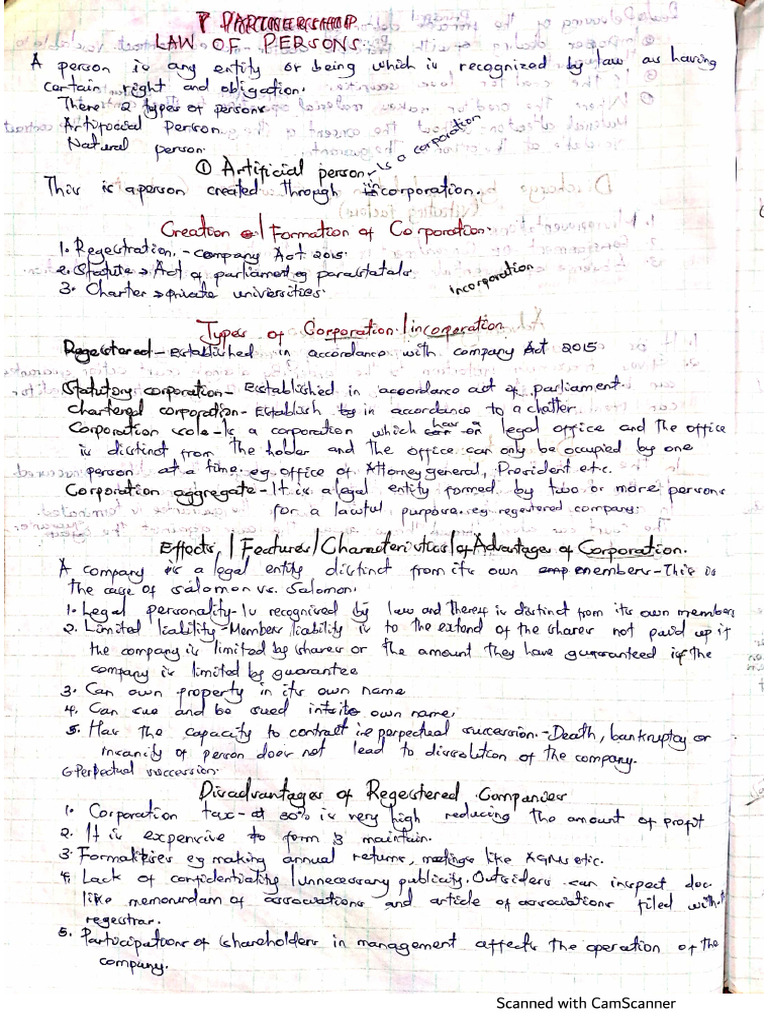 PARTNERSHIP
LAW OF PERSONS
A person is any entity or being which is recognized by law as having
certain right and obligation.
There 2 types of persons
Artificial Person
Natural person
① Artificial person - Is a corporation
This is a person created through incorporation.
Creation / Formation of Corporation.
1. Regestration. - company Act 2015.
2. Statute → Act of parliament eg parastatals.
3. Charter → private universities.
incorporation
Types of Corporation / incorporation
Regestered - Established in accordance with company Act 2015
Statutory corporation - Established in accordance act of parliament.
Chartered corporation - Establish in accordance to a chatter
Corporation sole - Is a corporation which has a legal office and the office
is distinct from the holder and the office can only be occupied by one
person at a time. eg office of Attorney general, President etc.
Corporation aggregate - It is a legal entity formed by two or more persons
for a lawful purpose. eg regestered company.
Effects / Features / Characteristics / of Advantages of Corporation.
A company is a legal entity distinct from its own members - This is
the case of salomon vs. Salomon.
1. Legal personality - Is recognised by law and is distinct from its own members
2. Limited liability - Members liability is to the extend of the shares not paid up if
the company is limited by shares or the amount they have guaranteed if the
company is limited by guarantee
3. Can own property in its own name
4. Can sue and be sued own name.
5. Has the capacity to contract i.e perpectual succession. - Death, bankruptcy or
insanity of person does not lead to dissolution of the company.
6 Perpectual succession.
Disadvantages of Regestered Companies
1. Corporation tax - at 30% is very high reducing the amount of profit
2. It is expensive to form & maintain.
3. Formalities eg making annual returns, meetings like AGMs etc.
4. Lack of confidentiality / unnecessary publicity. Outsiders can inspect doc.
like memorundam of associations and article of associations filed with
regestrar.
5. Participations of shareholders in management affects the operation of the
company.
Scanned with CamScanner